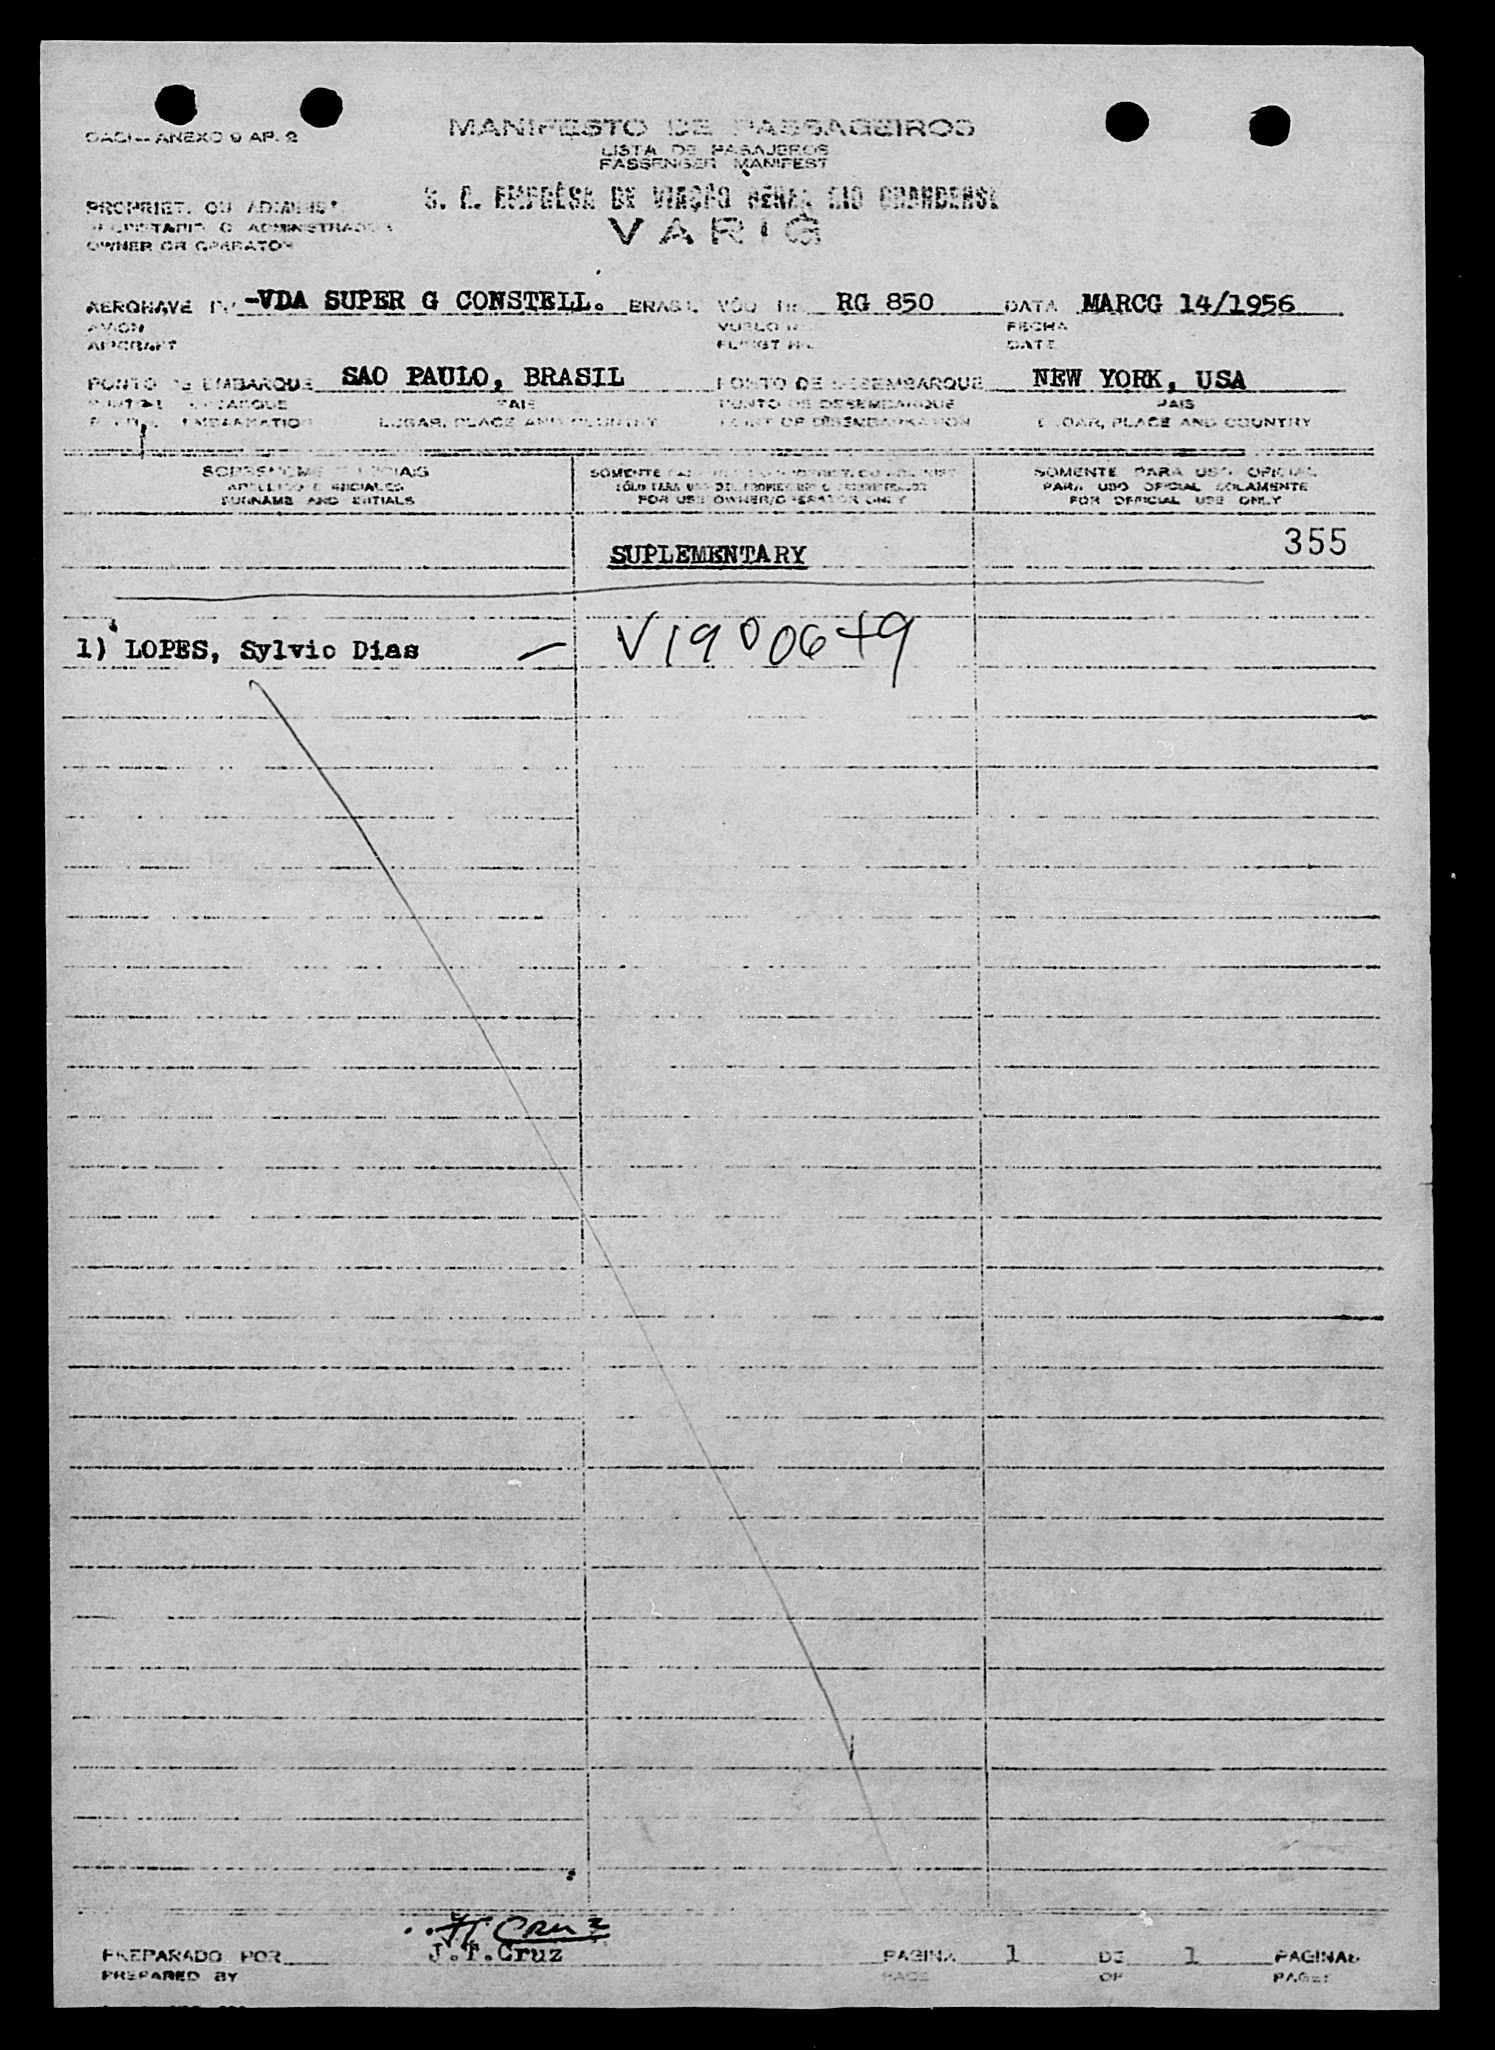 OACI - ANEXO 9 AP. 2
MANIFESTO DE PASSAGEIROS
LISTA DE PASAJEROS
PASSENGER MANIFEST
S. A. EMPRÊSA DE VIAÇÃO AÉREA RIO GRANDENSE
VARIG
PROPRIET. OU ADMINIST.
PROPIETARIO O ADMINISTRADOR
OWNER OR OPERATOR
AERONAVE -VDA SUPER G CONSTELL. BRASIL VÔO RG 850 DATA MARCG 14/1956
AVION VUELO FECHA
AIRCRAFT FLIGHT DATE
PONTO DE EMBARQUE SAO PAULO, BRASIL PONTO DE DESEMBARQUE NEW YORK, USA
EMBARQUE PAIS PUNTO DE DESEMBARQUE PAIS
EMBARKATION LUGAR, PLACE AND COUNTRY POINT OF DISEMBARKATION LUGAR, PLACE AND COUNTRY
SOBRENOME E INICIAIS
APELLIDO E INICIALES
SURNAME AND INITIALS
SOMENTE
SÓLO PARA USO DEL PROPIETARIO O
FOR USE OWNER/OPERATOR ONLY
SOMENTE PARA USO OFICIAL
PARA USO OFICIAL SOLAMENTE
FOR OFFICIAL USE ONLY
SUPLEMENTARY 355
1) LOPES, Sylvio Dias — V1900649
J.T. Cruz
PREPARADO POR J.T.Cruz PAGINA 1 DE 1 PAGINAS
PREPARED BY PAGE OF PAGES